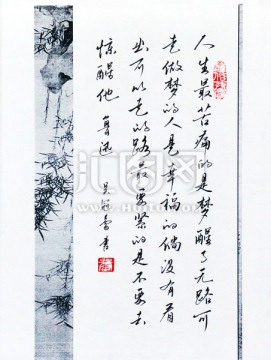 人生最苦痛的是梦醒了无路可
走做梦的人是幸福的倘没有看
出可以走的路最要紧的是不要去
惊醒他 鲁迅
汇图网